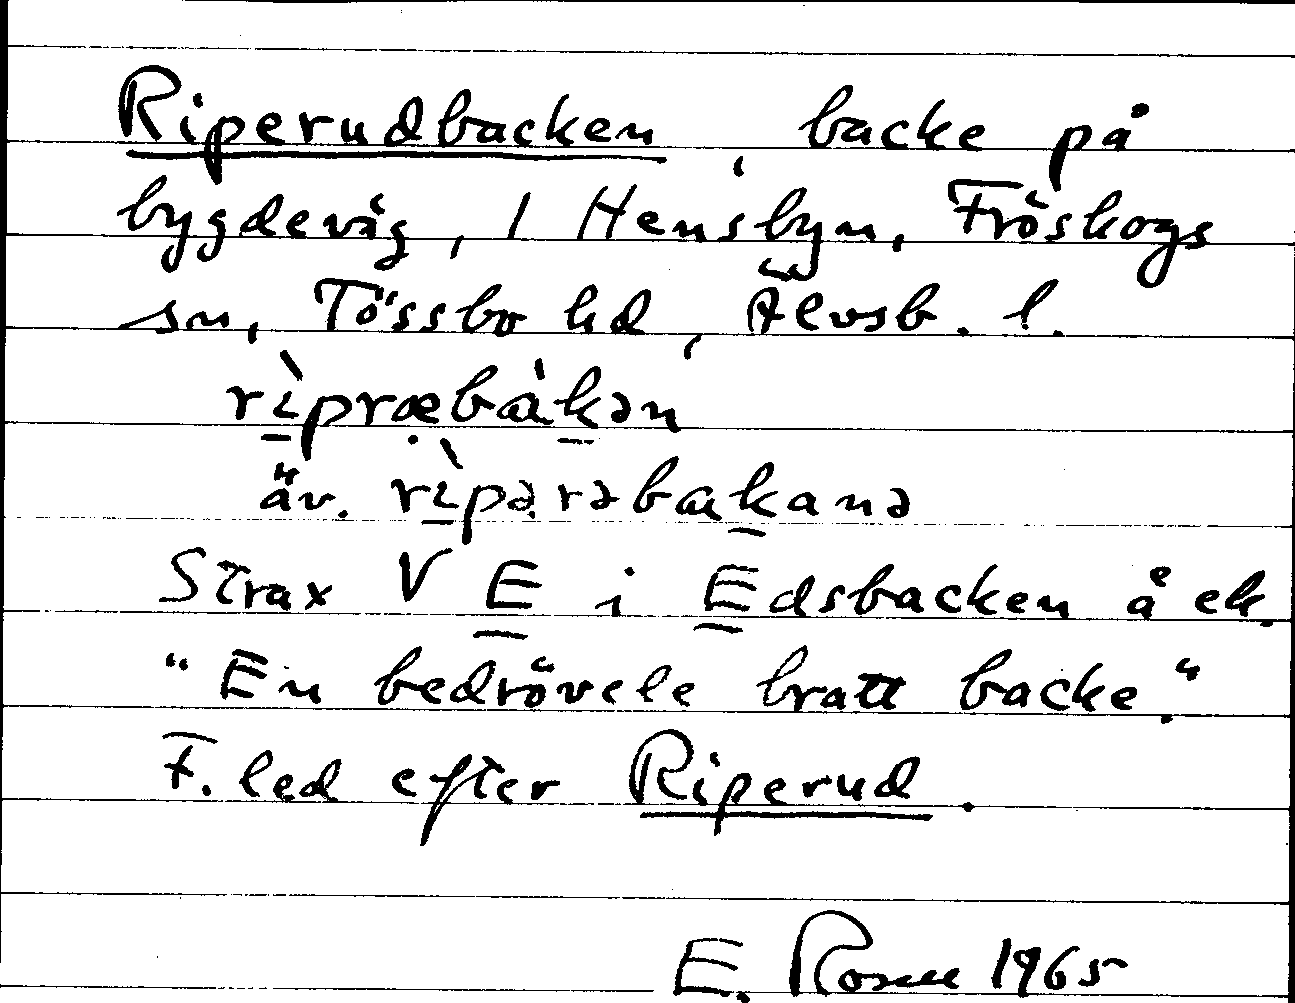 Riperudbacken, backe på
bygdeväg, / Hensbyn, Fröskogs
sn, Tössbo hd, Älvsb. l.
rìpræbàkən
äv. rìpərəbakanə
Strax V E i Edsbacken å ek.
"En bedrövele bratt backe."
F. led efter Riperud.
E. Rosell 1965